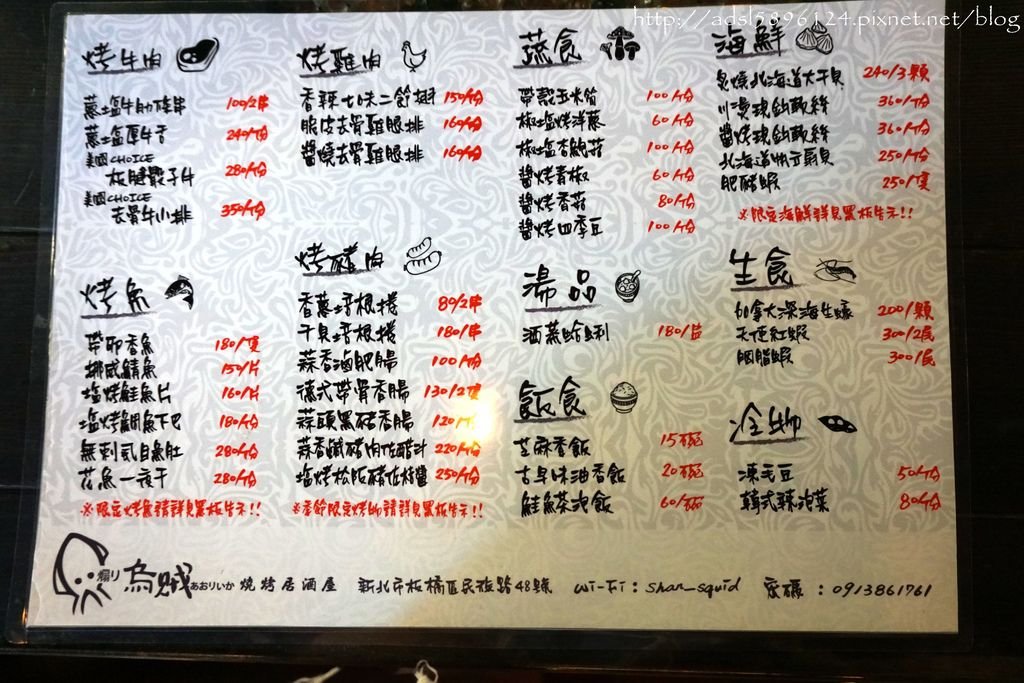 http://adsl5896124.pixnet.net/blog
烤牛肉
蔥鹽牛肋條串 100/2串
蔥鹽厚牛舌 240/份
美國CHOICE
板腱骰子牛 280/份
美國CHOICE
去骨牛小排 350/份
烤魚
帶卵香魚 180/隻
挪威鯖魚 150/片
塩烤鮭魚片 160/片
塩烤鯛魚下巴 180/份
無刺虱目魚肚 280/份
花魚一夜干 280/份
※限定烤魚請詳見黑板告示!!
烤雞肉
香辣七味二節翅 150/份
脆皮去骨雞腿排 160/份
醬燒去骨雞腿排 160/份
烤豬肉
香蔥培根捲 80/2串
干貝培根捲 180/串
蒜香滷肥腸 100/份
德式帶骨香腸 130/2隻
蒜頭黑豬香腸 120
蒜香鹹豬肉佐醋汁 220/份
塩烤松阪豬佐柚醬 250/份
※季節限定烤物請詳見黑板告示!!
蔬食
帶殼玉米筍 100/份
椒塩烤洋蔥 60/份
椒塩杏鮑菇 100/份
醬烤青椒 60/份
醬烤香菇 80/份
醬烤四季豆 100/份
湯品
酒蒸蛤蜊 180/盅
飯食
芝麻香飯 15/碗
古早味油香飯 20/碗
鮭魚茶泡飯 60/碗
海鮮
炙燒北海道大干貝 240/3顆
川燙現釣軟絲 360/份
醬烤現釣軟絲 360/份
北海道帆立扇貝 250/份
肥豬蝦 250/隻
※限定海鮮詳見黑板告示!!
生食
加拿大深海生蠔 200/顆
天使紅蝦 300/2尾
胭脂蝦 300/尾
冷物
凍毛豆 50/份
韓式辣泡菜 80/份
煽り烏賊 あおりいか 燒烤居酒屋 新北市板橋區民族路48號 Wi-Fi : shan_squid 密碼 : 0913861761